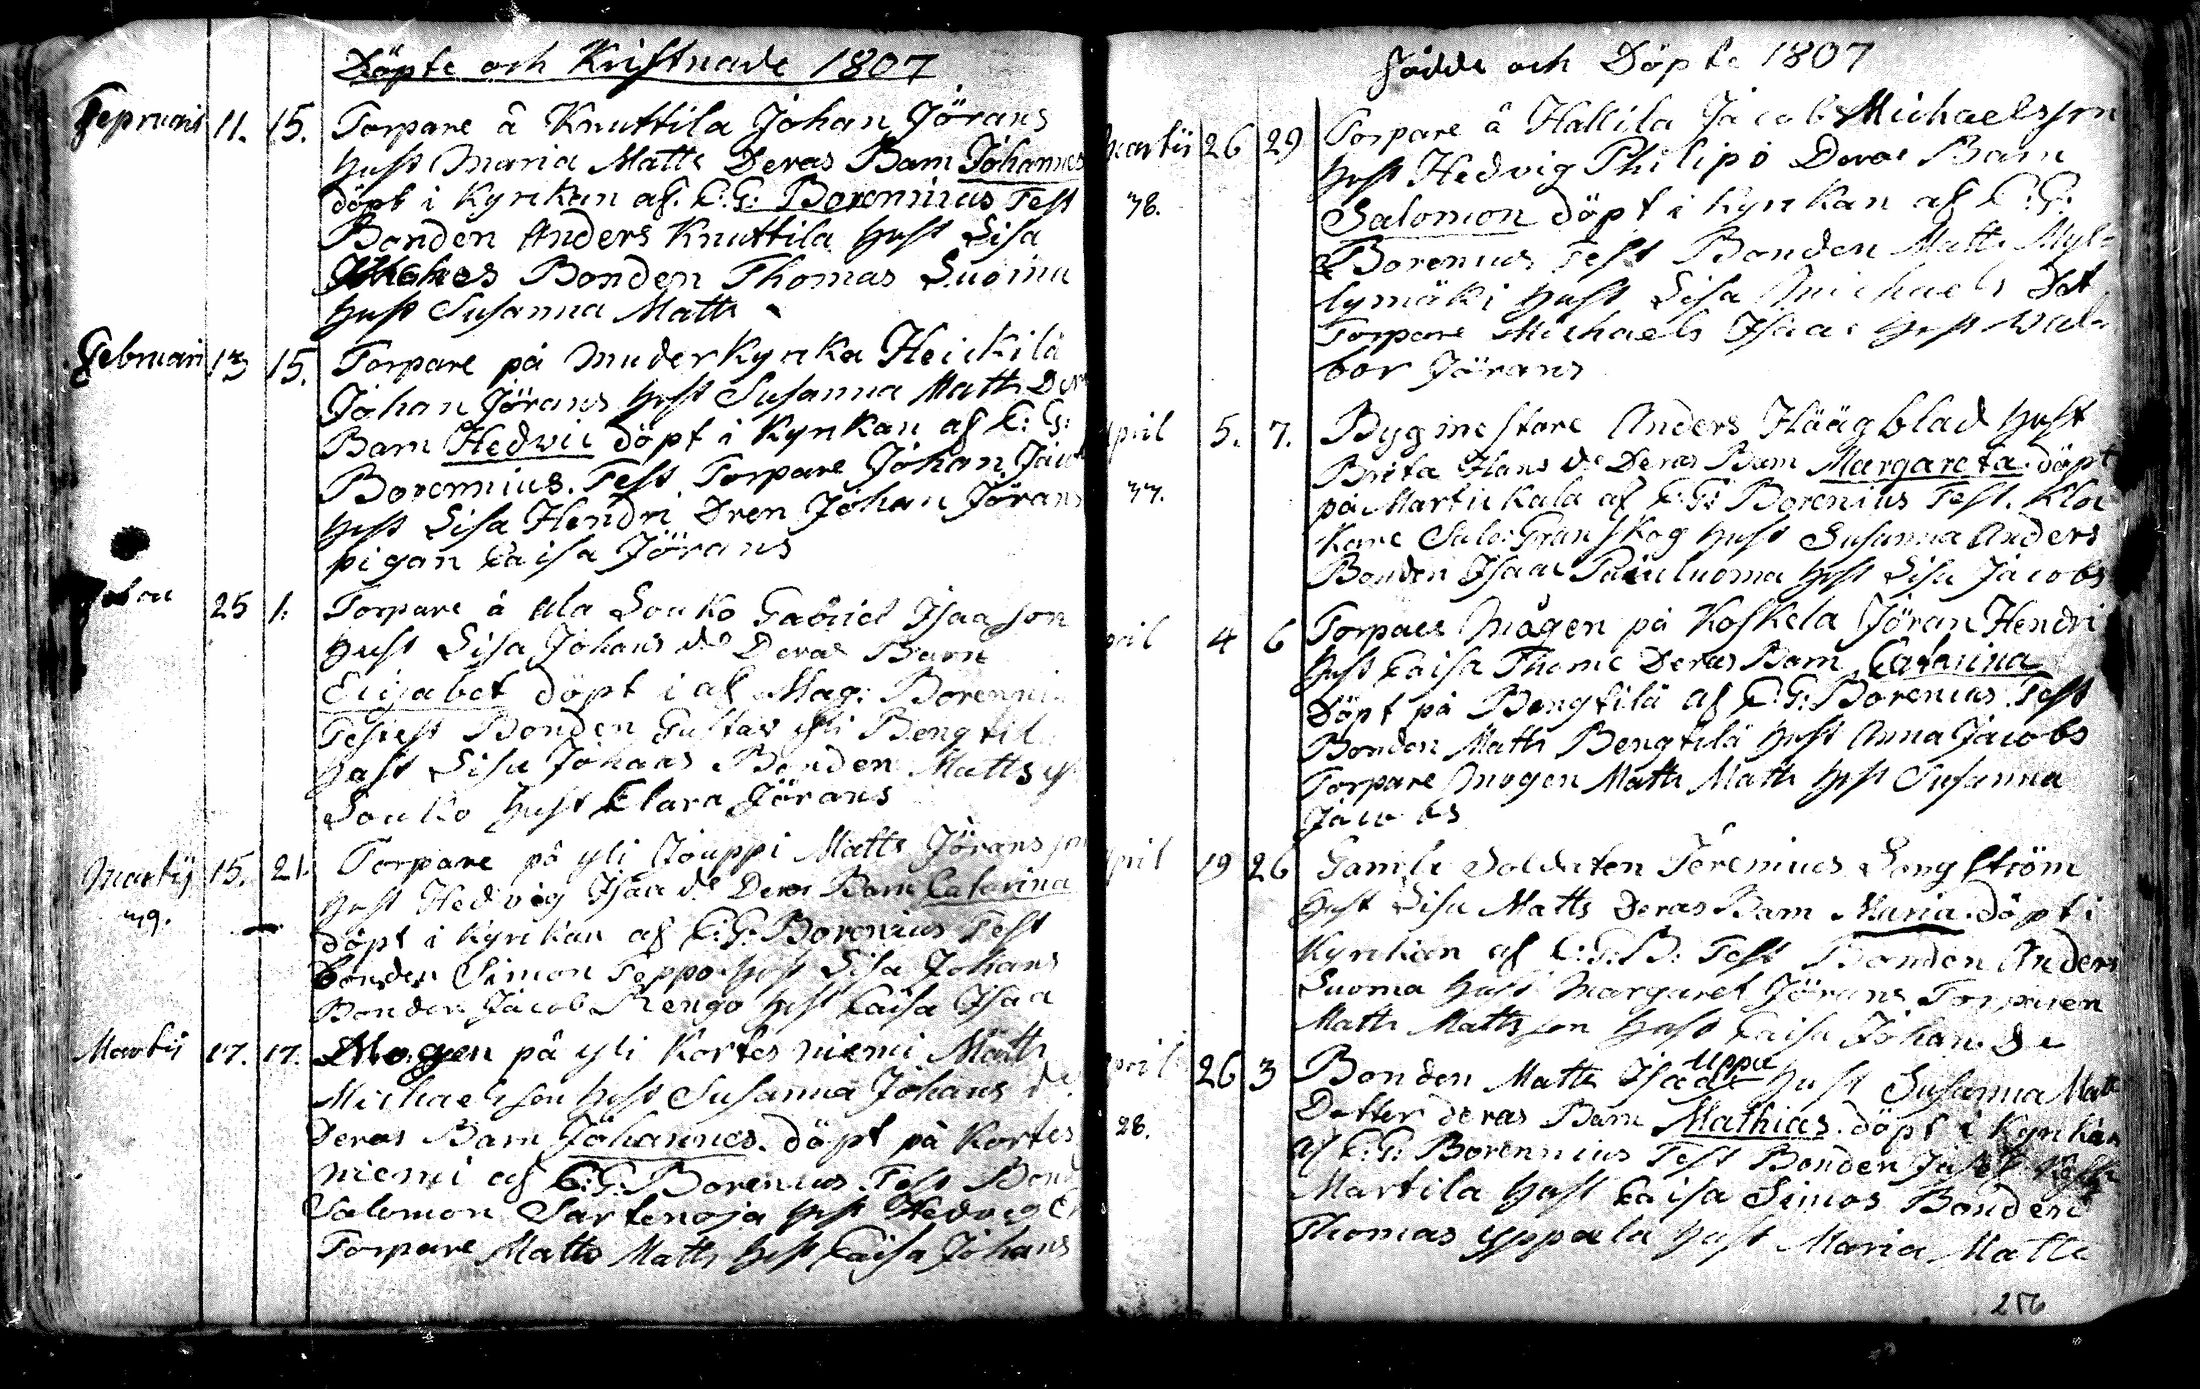 Döpte och Kristnade 1807
Fepruari 11. 15. Torpare å Knuttila Johan Jörans
hust Maria Matts Deras Barn Johannes
döpt i Kyrkan af. C. G. Borennius Test
Bonden Anders Knuttila hust Lisa
Bonden Thomas Suoma
hust Susanna Matts
Februari 13 15. Torpare på muderKyrka Heickilä
Johan Jörans hust Susanna Matts
Barn Hedvic döpt i Kyrkan af C: G:
Borennius. Test Torpare Johan
hust Lisa Hendri Dren Johan Jörans
pigan Caisa Jörans
25 1. Torpare å Ala Souko Gabriel Isaa son
hust Lisa Johans de Deras Barn
Elisabet döpt i af Mag: Borenni
Bonden Gustav yli Bengtil
hust Lisa Johans Bonden Matts
Souko hust Clara Jörans
Martij 15. 21. Torpare på yli Jouppi Matts Jörans
79.
hust Hedvig Isaa de Deras Barn Catarina
döpt i Kyrkan af C: G: Borenius Test
bonden Simon Teppo hust Lisa Johans
Bonden Jacob Rengo hust Caisa Isaa
Martij 17. 17. Mågen på yli Kortes niemi Matts
Michaelsson hust Susanna Johans de
Deras Barn Johannes. döpt på Kortes
niemi af C: G: Borenius. Test Bond
Salomon Sartenoja hust Hedvig
Torpare Matts Matts hust Caisa Johans
födde och Döpte 1807
martii 26 29 Torpare å Hallila Jacob Michaelsson
hust Hedvig Philips Deras Barn
78.
Salomon döpt i Kyrkan af C: G:
Borenius Test Bonden Matts Myl=
lymäki hust Lisa Michaels Dot
Torpare Michaels Isaac hust Wal
bor Jörans
pril 5. 7. Bygmestare Anders Häägblad hust
Brita Hans de Deras Barn Margareta. döpt
77.
på Martickala af C: G: Borenius Test. Kloc
kare Salo: Granskog hust Susanna Anders
Bonden Isaac hust Lisa Jacobs
pril 4 6 Torpare Mågen på Koskela Jöran Hendri
hust Caisa Thome Deras Barn Catarina
Döpt på Bengtilä af C: G: Borenius. Test
Bonden Matts Bengtilä hust Anna Jacobs
Torpare mogen Matts Matts hust Susanna
Jacobs
pril 19 26 Gamla Soldaten Jeremius Longström
hust Lisa Matts Deras Barn Maria. döpt i
Kyrkan af C: G: B: Test Bonden Anders
Suoma hust Margaret Jörans Torparen
Matts Mattsson hust Caisa Johans De
pril 26 3 Bonden Matts Isaac Uppa hust Susanna Matts
Dotter deras Barn Mathias. döpt i Kyrkan
28.
af C: G: Borennius Test Bonden
Martila hust Caisa Simos Bonden
Thomas yppäla hust Maria Matts
256